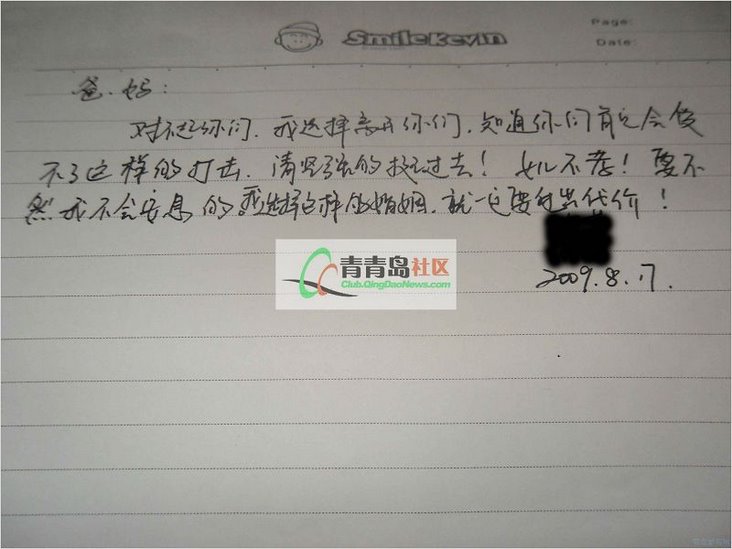 SmileKevin
Page:
Date:
爸.妈:
对不起你们.我选择离开你们.知道你们肯定会受
不了这样的打击.请坚强的挺过去!女儿不孝!要不
然我不会安息的.我选择这样的婚姻.就一定要付出代价!
青青岛社区
Club.QingDaoNews.com
2009.8.17.